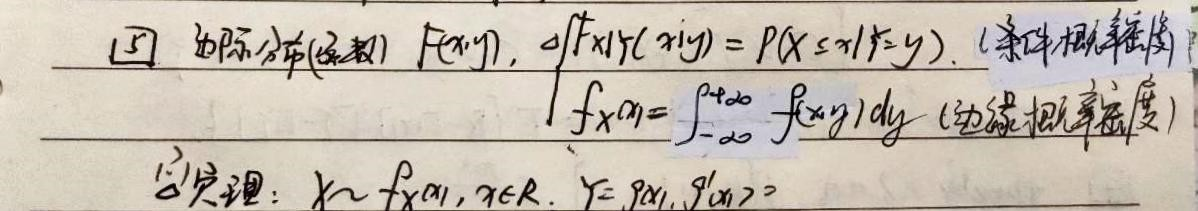 5 边际分布(函数) F(x,y). △{ F_{X|Y}(x|y) = P(X≤x|Y=y). (条件概率密度)
f_X(x) = ∫_{-∞}^{+∞} f(x,y)dy (边缘概率密度)
定理: X~f_X(x), x∈R. Y=g(x), g'(x)>